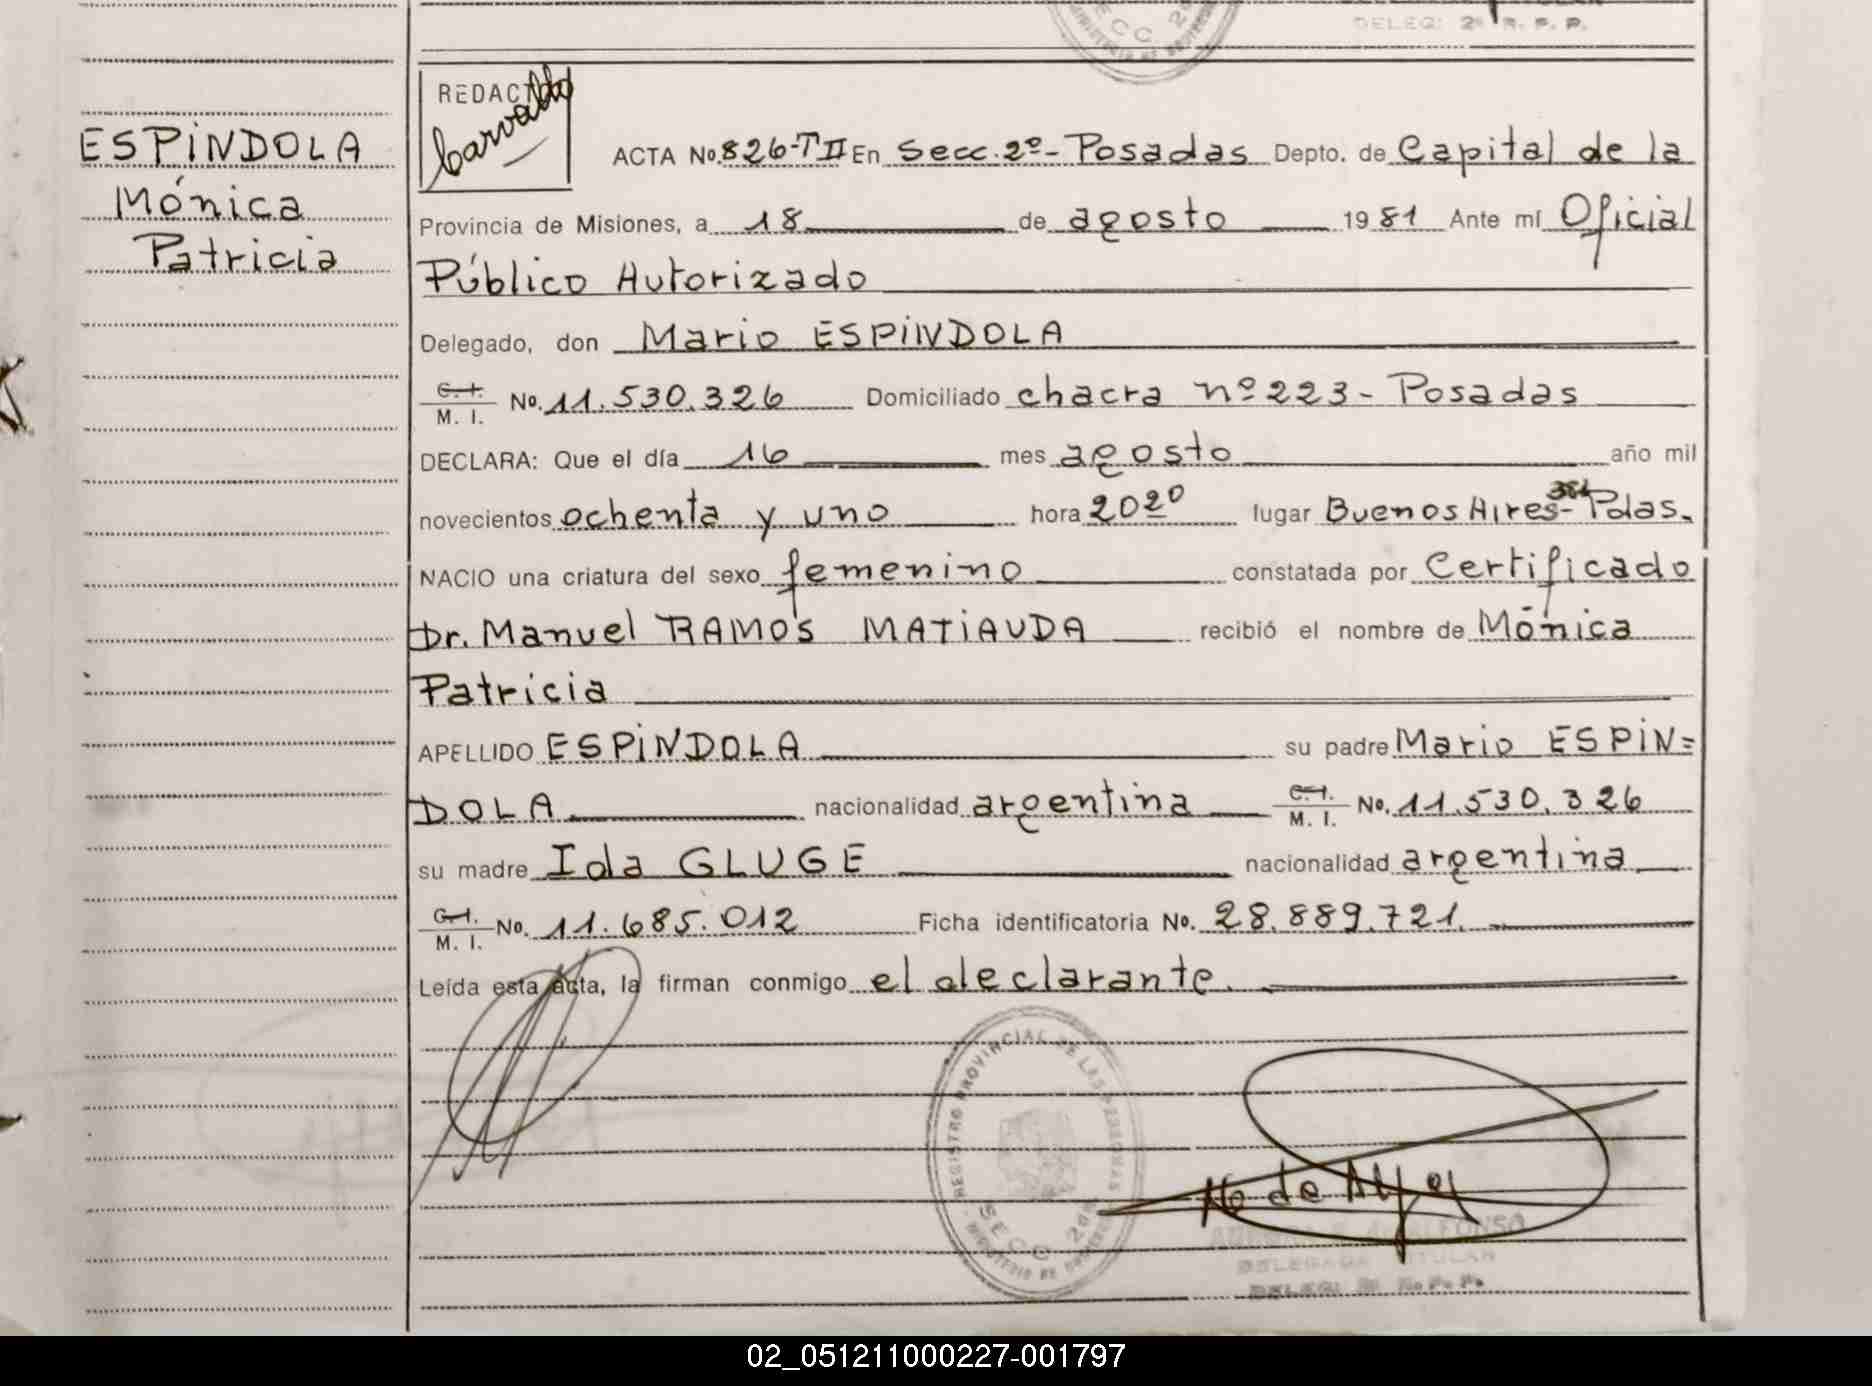 DELEG: 2ª R. P. P.
SECC 2ª
REDACTO
Carvallo
ESPiNDOLA
Mónica
Patricia
ACTA No. 826-TII En Secc. 2º- Posadas Depto. de Capital de la
Provincia de Misiones, a 18 de agosto 1981 Ante mí Oficial
Público Autorizado
Delegado, don Mario ESPiNDOLA
C. I.
M. I. No. 11.530.326 Domiciliado chacra nº 223 - Posadas
DECLARA: Que el día 16 mes agosto año mil
novecientos ochenta y uno hora 20 20 lugar Buenos Aires - Pdas.
NACIO una criatura del sexo femenino constatada por Certificado
Dr. Manuel RAMOS MATiAUDA recibió el nombre de Mónica
Patricia
APELLIDO ESPiNDOLA su padre Mario ESPiN=
DOLA nacionalidad argentina C. I.
M. I. No. 11.530.326
su madre Ida GLUGE nacionalidad argentina
C. I.
M. I. No. 11.685.012 Ficha identificatoria No. 28.889.721.
Leída esta acta, la firman conmigo el declarante.
REGISTRO PROVINCIAL DE LAS PERSONAS
SECC 2da
MINISTERIO DE GOBIERNO
ALFONSO
DELEGADA TITULAR
DELEG: 2ª R. P. P.
02_051211000227-001797